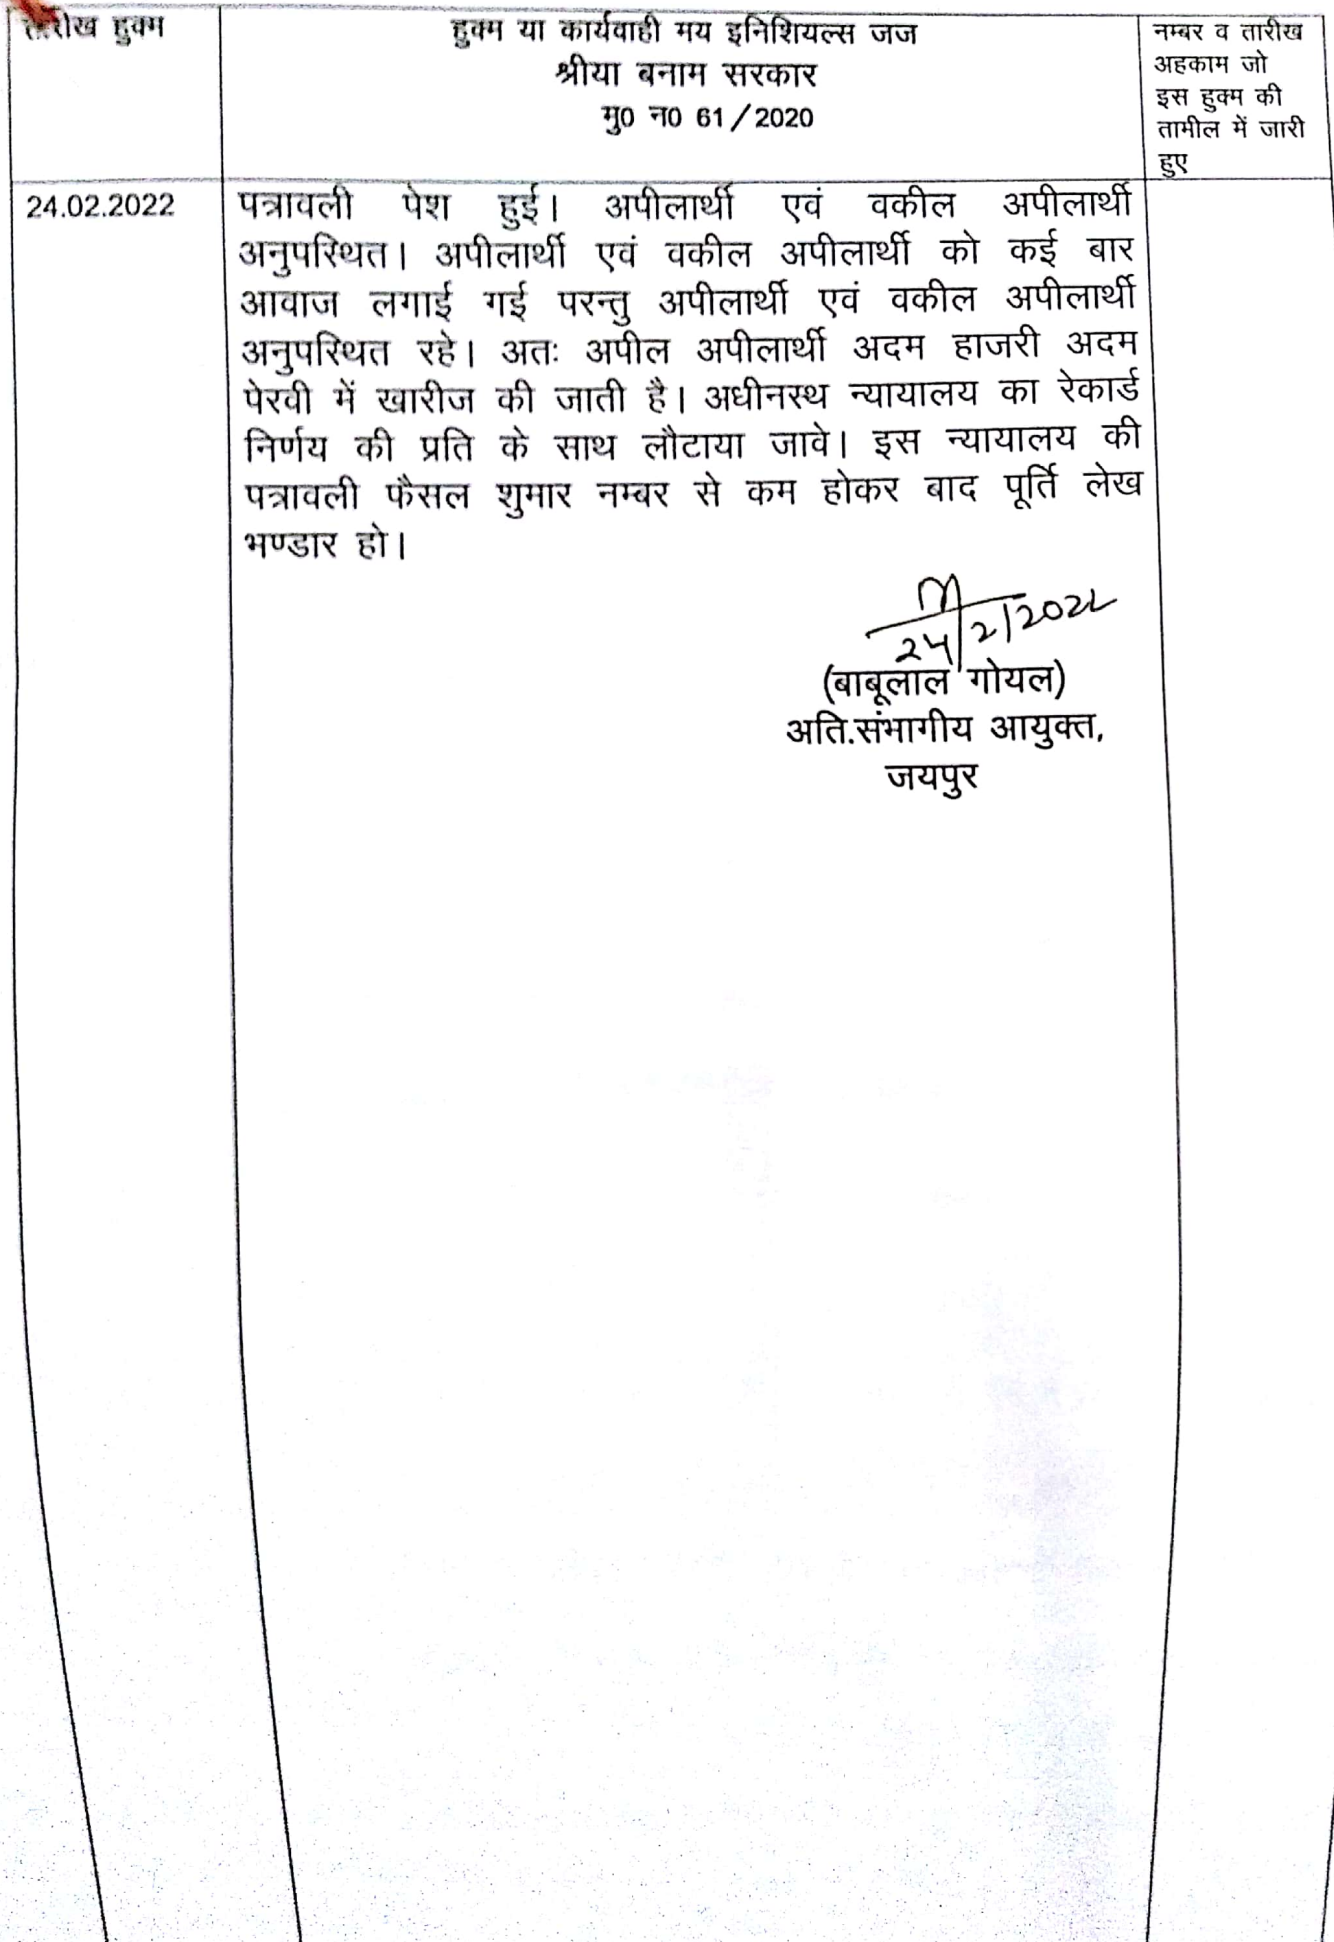 तारीख हुक्म
हुक्म या कार्यवाही मय इनिशियल्स जज
श्रीया बनाम सरकार
मु0 न0 61/2020
नम्बर व तारीख
अहकाम जो
इस हुक्म की
तामील में जारी
हुए
24.02.2022
पत्रावली पेश हुई। अपीलार्थी एवं वकील अपीलार्थी
अनुपस्थित। अपीलार्थी एवं वकील अपीलार्थी को कई बार
आवाज लगाई गई परन्तु अपीलार्थी एवं वकील अपीलार्थी
अनुपस्थित रहे। अतः अपील अपीलार्थी अदम हाजरी अदम
पेरवी में खारीज की जाती है। अधीनस्थ न्यायालय का रेकार्ड
निर्णय की प्रति के साथ लौटाया जावे। इस न्यायालय की
पत्रावली फैसल शुमार नम्बर से कम होकर बाद पूर्ति लेख
भण्डार हो।
24/2/2022
(बाबूलाल गोयल)
अति.संभागीय आयुक्त,
जयपुर